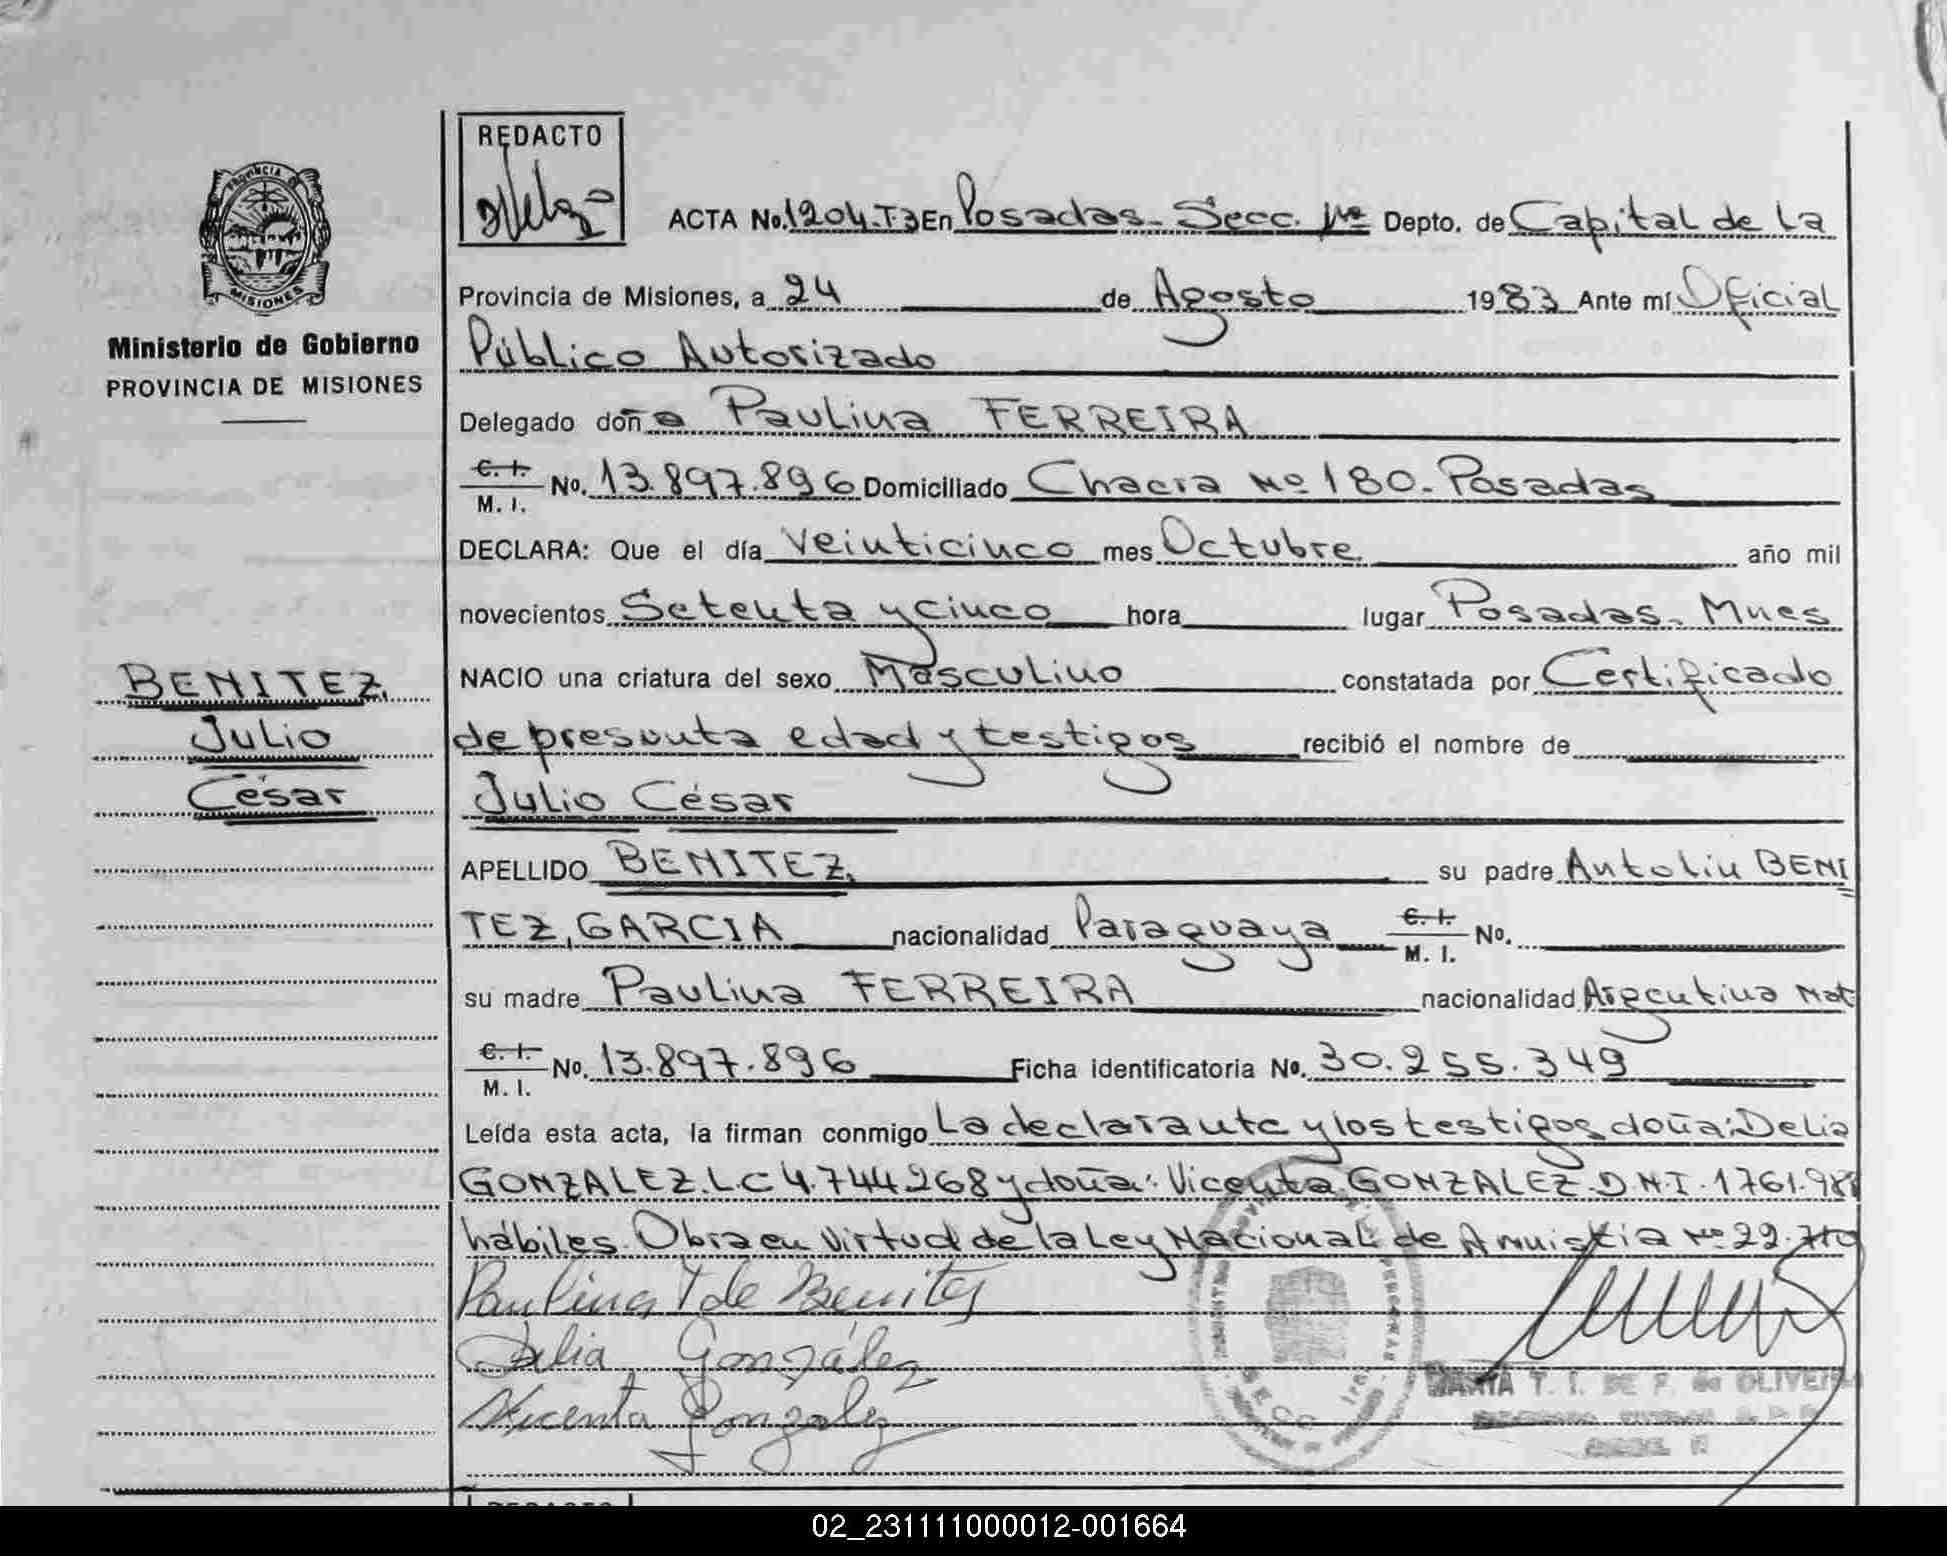 REDACTO
PROVINCIA DE
MISIONES
Ministerio de Gobierno
PROVINCIA DE MISIONES
ACTA No. 1204.T3 En Posadas. Secc. 1ra Depto. de Capital de La
Provincia de Misiones, a 24 de Agosto 1983 Ante mí Oficial
Público Autorizado
Delegado doña Paulina FERREIRA
C. I. M. I. No. 13.897.896 Domiciliado Chacra Nº 180. Posadas
DECLARA: Que el día veinticinco mes Octubre año mil
novecientos Setenta y cinco hora lugar Posadas. Mnes
NACIO una criatura del sexo Masculino constatada por Certificado
de presunta edad y testigos recibió el nombre de
Julio César
BENITEZ,
Julio
César
APELLIDO BENITEZ, su padre Antolin BENI
TEZ, GARCIA nacionalidad Paraguaya C. I. M. I. No.
su madre Paulina FERREIRA nacionalidad Argentina Nat
C. I. M. I. No. 13.897.896 Ficha identificatoria No. 30.255.349
Leída esta acta, la firman conmigo La declarante y los testigos doña: Delia
GONZALEZ. L.C 4.744.268 y doña: Vicenta GONZALEZ. D.N.I. 1761.98
hábiles. Obra en virtud de la Ley Nacional de Amnistia Nº 22.710
Paulina F de Benites
Delia González
Vicenta Gonzalez
SECC
T. I. DE F. de OLIVEIRA
02_231111000012-001664